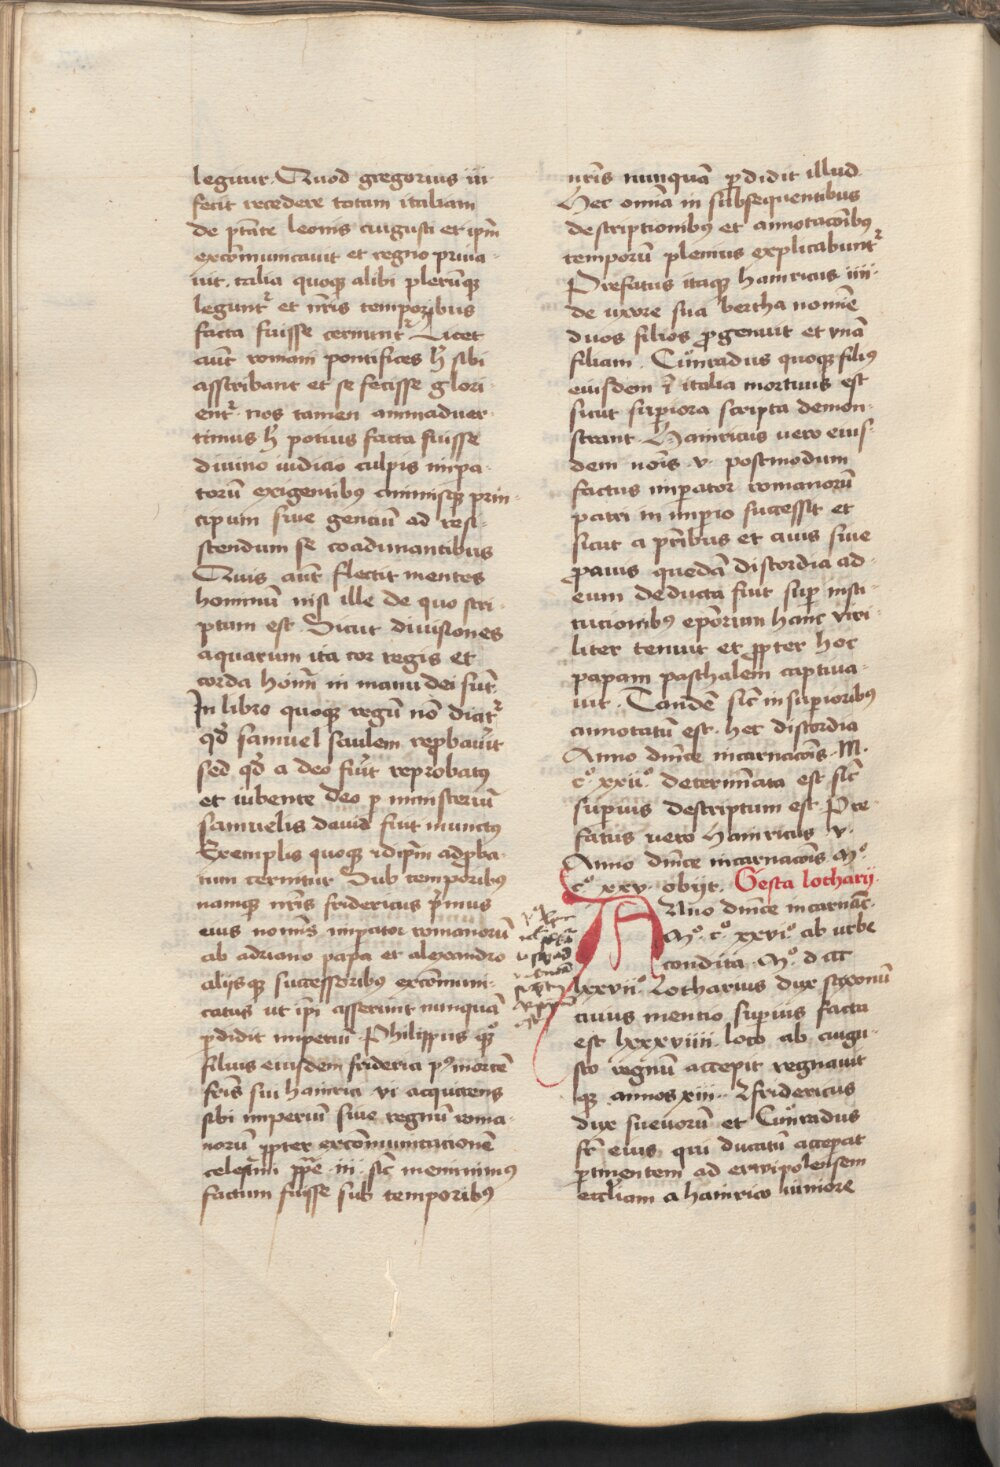 legitur. Quod gregorius iii
fecit recedere totam italiam
de ptāte leonis augusti et ip̄m
excōmunicauit et regno priua-
uit. talia quoqꝫ alibi plerūqꝫ
legunt᷑ et nr̄is temporibus
facta fuisse cernunt᷑ Licet
aūt romani pontifices h̄ sibi
asscribant et se fecisse glori-
ent᷑. nos tamen animaduer-
timus h̄ potius facta fuisse
diuino iudicio culpis impa-
torū exigentibꝰ animisqꝫ prin-
cipum siue gentiū ad resi-
stendum se coadunantibus
Quis aūt flectit mentes
hominū nisi ille de quo scri-
ptum est Sicut diuisiones
aquarum ita cor regis et
corda hoīm in manu dei sūt.
In libro quoqꝫ regū nō dicit᷑
qd̄ samuel saulem reprobauit
sed qd̄ a deo fūit reprobatꝰ
et iubente deo p ministeriū
samuelis dauid fuit inunctꝰ
Exemplis quoqꝫ idip̄m adproba-
tum cernitur Sub temporibꝰ
namqꝫ nr̄is fridericus p̄mus
eius nomīs impator romanorū
ab adriano papa et alexandro
alijsqꝫ successoribꝰ excōmuni-
catus ut ip̄i asserunt nunquā
pdidit imperiū Philippus qͦꝫ
filius eiusdem friderici pꝰ mortē
fr̄is sui hainrici vi acquirens
sibi imperiū siue regnū roma-
norū ꝓpter excōmunicationē
celestini pp̄e iii. sic̄ meminimꝰ
factum fuisse sub temporibꝰ
nr̄is nunquā pdidit illud.
Hec om̄ia in subsequentibus
descriptionibꝰ et annotacōibꝰ
temporū plenius explicabunt᷑
Prefatus itaqꝫ hainricus iiii.
de uxore sua bertha nomīe
duos filios ꝓgenuit et vnā
filiam. Cuͦnradus quoqꝫ filiꝰ
eiusdem ī italia mortuus est
sicut supiora scripta demon-
strant. Hainricus uero eius-
dem nōis v. postmodum
factus impator romanorū
patri in impio successit et
sicut a pr̄ibus et auis siue
ꝓauis quedā discordia ad
eum deducta fuit sup insti-
tucionibꝰ ep̄orum hanc viri-
liter tenuit et ꝓpter hoc
papam paschalem captiua-
uit. Tandē sic̄ in supioribꝰ
annotatū est. hec discordia
Anno dn̄ice incarnacōis. M.
cͦ. xxiiͦ. determīata est sic̄
supius descriptum est Pre-
fatus uero hainricus v.
Anno dn̄ice incarnacōis Mͦ.
cͦ xxv. obijt. Gesta lotharij.
Anno dn̄ice incarnac̄.
Mͦ. cͦ. xxviͦ. ab urbe
condita. Mͦ. d ccc
lxxviiͦ. Lotharius dux saxonū
cuius mentio supius facta
est lxxxviiii. loco ab augu-
sto regnū accepit regnauit
qꝫ annos xiii. Fridericus
dux sueuorū et Cuͦnradus
fr̄ eius qui ducatū accepat
ptinentem ad erwipolensem
eccl̄iam a hainrico iuniore